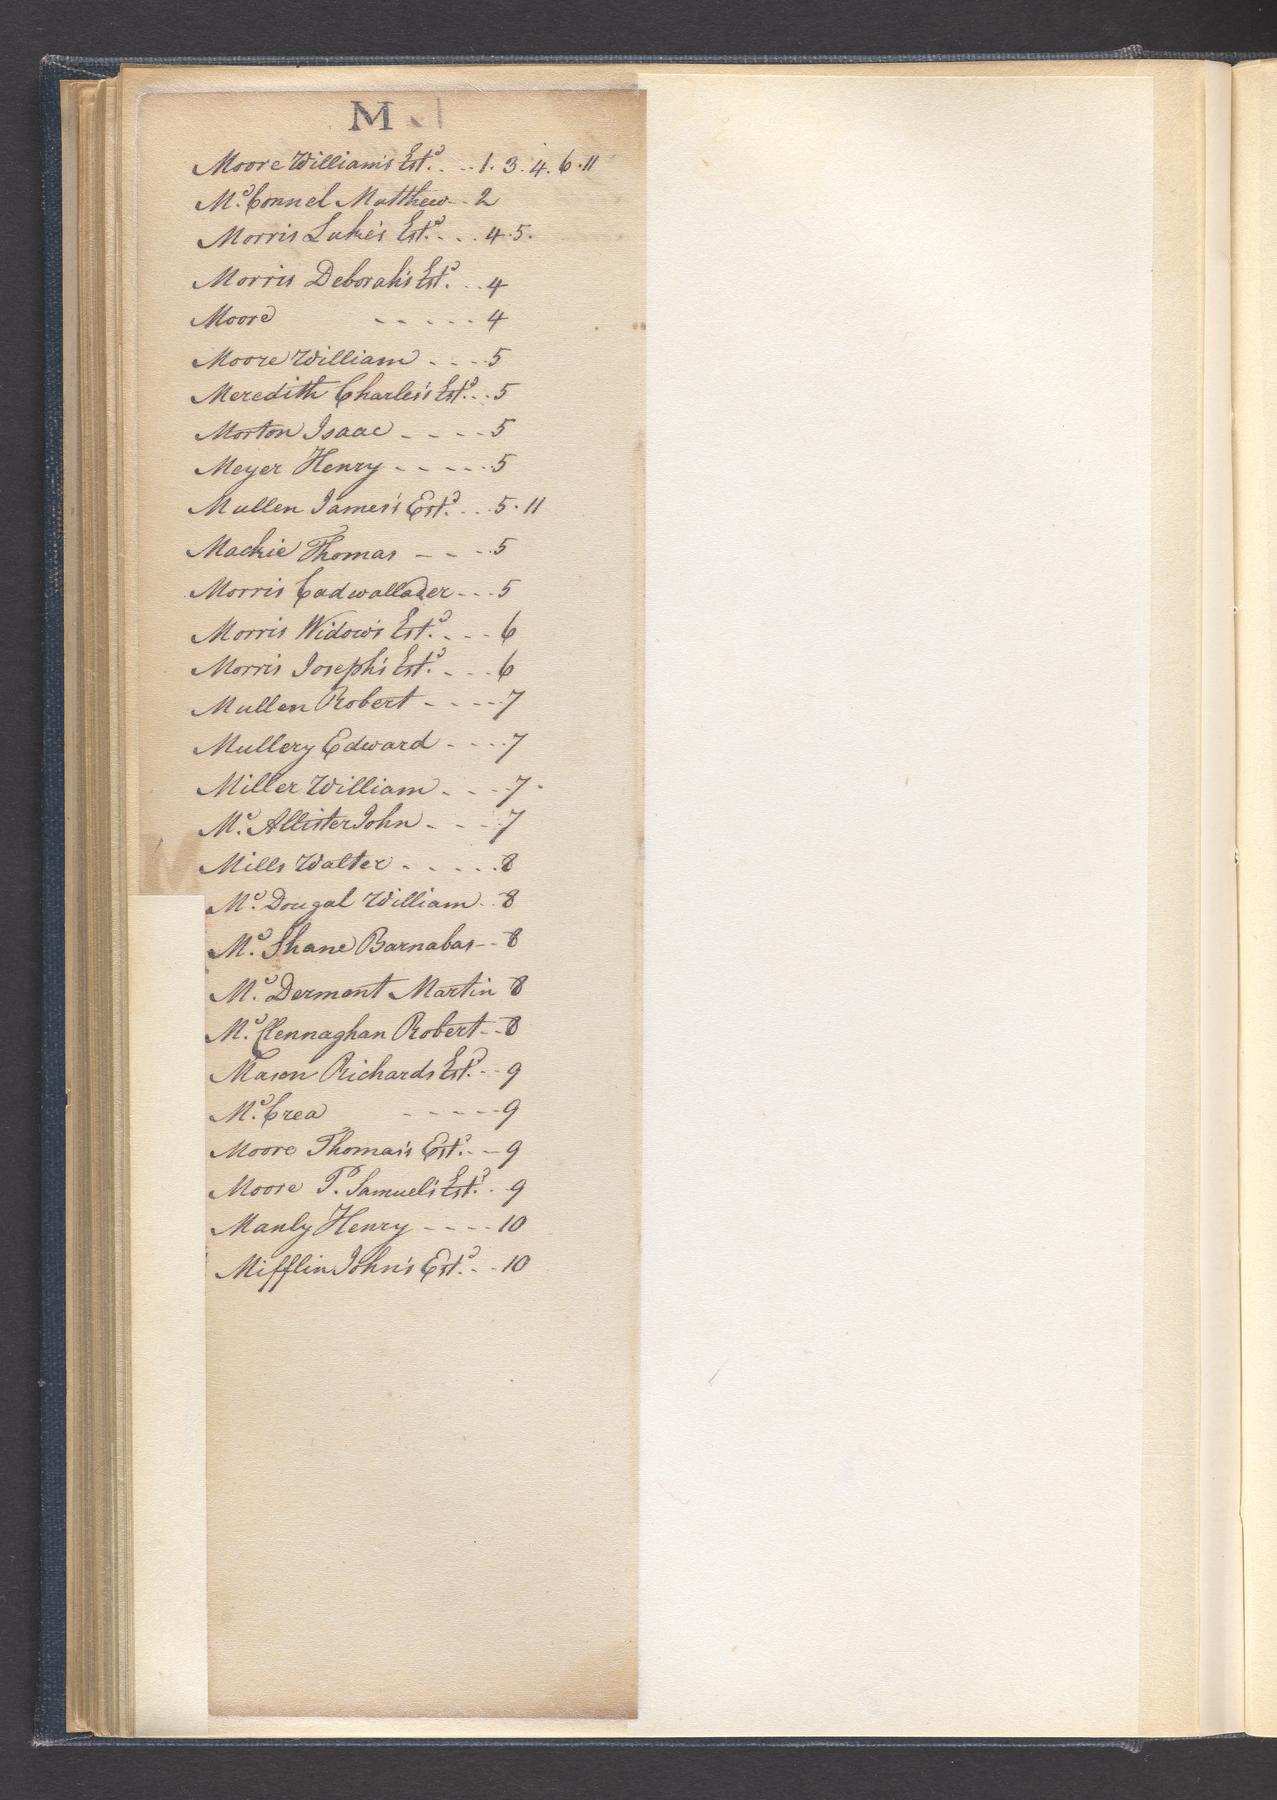 M
Moore William's Est.ᵈ . . . 1. 3. 4. 6. 11
M.ᶜ Connel Matthew - . 2
Morris Luke's Est.ᵈ . . . 4. 5.
Morris Deborah's Est.ᵈ . . . 4
Moore - - - - - 4
Moore William - - - . 5
Meredith Charles's Est.ᵈ . . 5
Morton Isaac - - - - 5
Meyer Henry - - - - . 5
Mullen James's Est.ᵈ . . . 5. 11
Mackie Thomas - - - . 5
Morris Cadwallader - - . 5
Morris Widow's Est.ᵈ . - - 6
Morris Joseph's Est.ᵈ - - - 6
Mullen Robert - - - - . 7
Mullery Edward - - - . 7
Miller William - - - . 7 -
M.ᶜ Allister John - - - 7
Mills Walter - - . . . 8
M.ᶜ Dougal William . . 8
M.ᶜ Shane Barnabas - - 8
M.ᶜ Dermont Martin 8
M.ᶜ Clennaghan Robert - - 8
Mason Richards Est.ᵈ - - 9
M.ᶜ Crea - - - - - 9
Moore Thomas's Est.ᵈ - - 9
Moore P. Samuel's Est.ᵈ . 9
Manly Henry - - - - 10
Mifflin John's Est.ᵈ . . . 10